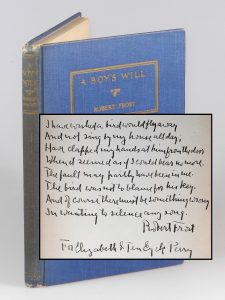 A BOY'S WILL
ROBERT FROST
I have wished a bird would fly away,
And not sing by my house all day;
Have clapped my hands at him from the door
When it seemed as if I could bear no more.
The fault may partly have been in me.
The bird was not to blame for his key.
And of course there must be something wrong
In wanting to silence any song.
Robert Frost
To Elizabeth & Ten Eyck Perry